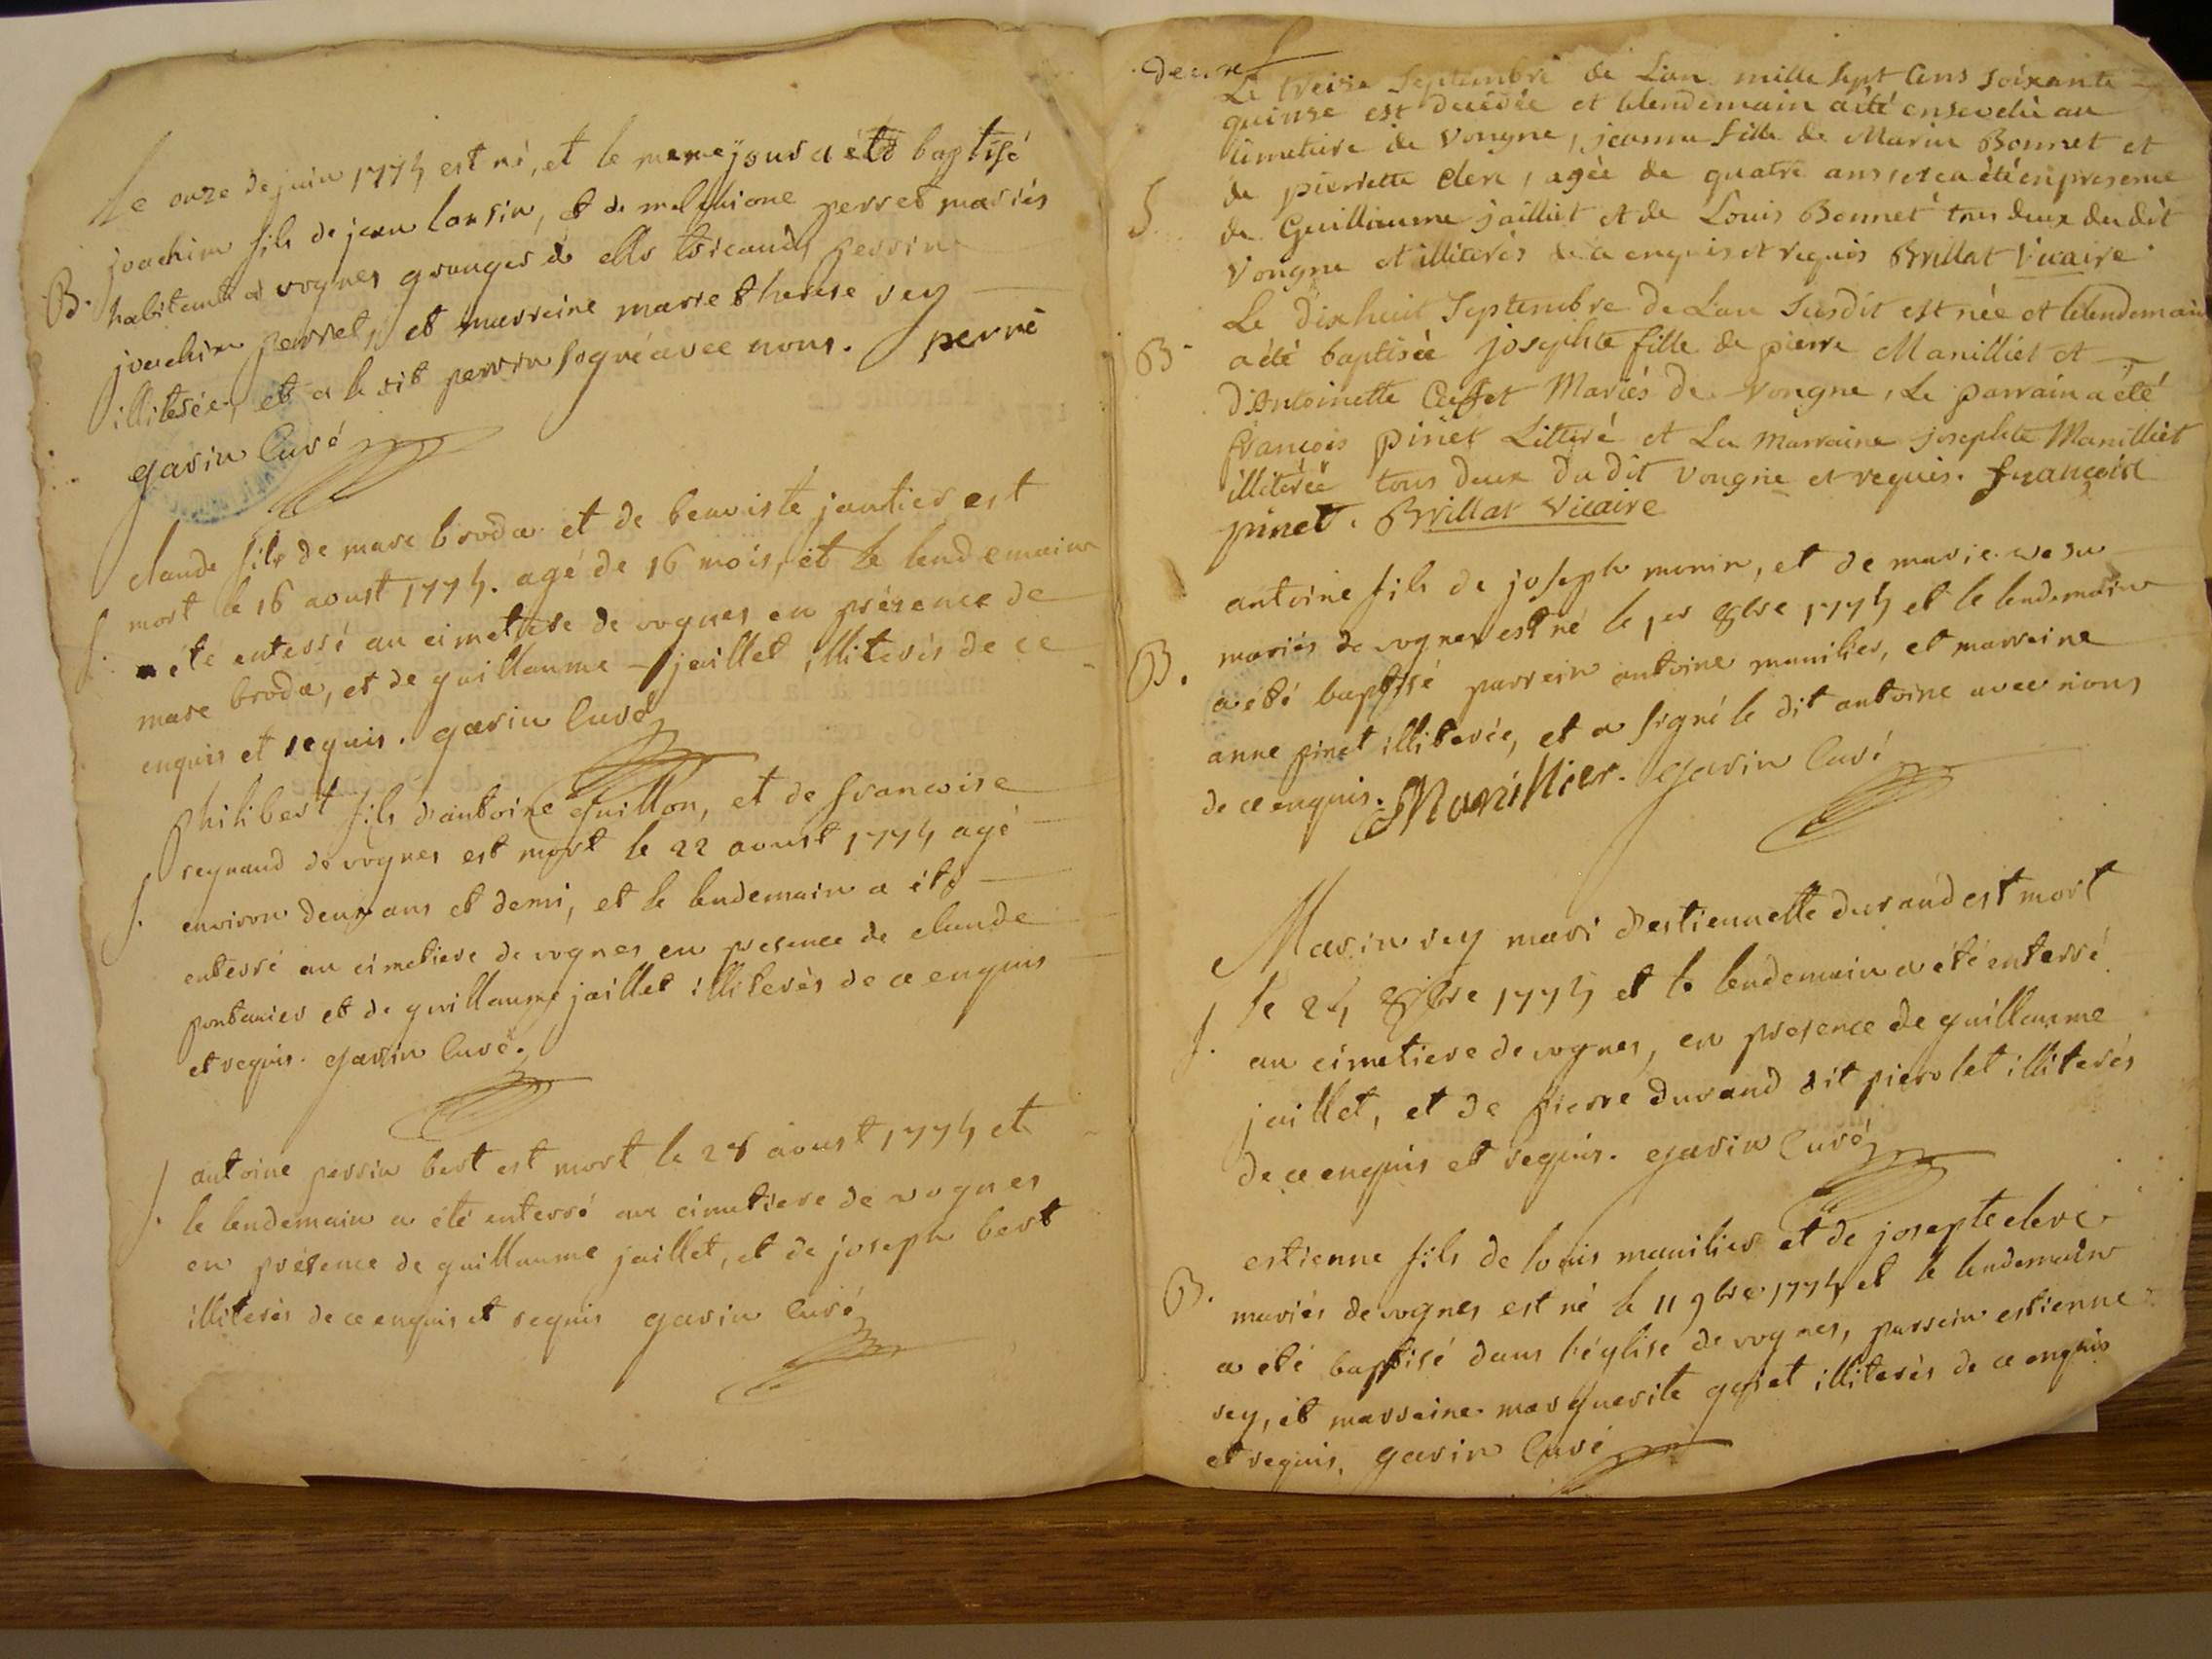 Le onze de juin 1775 est né, et le meme jour a été baptisé
B. joachim fils de jean lansin, et de melchione perret mariés
habitants a vognes granger de mr tricaud, perrin
joachim perret, et marreine marie therese rey
illiterée, et a le dit perrin signé avec nous. perré
garin Curé
claude fils de marc broda et de benoiste jantier est
S. mort le 16 aoust 1775. agé de 16 mois, et le lendemain
a été enterré au cimetiere de vognes en présence de
marc broda, et de guillaume jaillet illiterés de ce
enquis et requis. garin Curé
philibert fils d'antoine guillon, et de francoise
S. reynaud de vognes est mort le 22 aoust 1775 agé
environ deux ans et demi, et le lendemain a été
enterré au cimetiere de vognes en presence de claude
pontanier et de guillaume jaillet illiterés de ce enquis
et requis. garin Curé.
S. antoine perrin bert est mort le 28 aoust 1775 et
le lendemain a été enterré au cimetiere de vognes
en présence de guillaume jaillet, et de joseph bert
illiterés de ce enquis et requis garin Curé
deux
Le treise Septembre de L'an mille sept Cens soixante
quinse est decédée et lelendemain a été ensevelie au
Cimetiere de Vongne, jeanne fille de Marin Bonnet et
de pierrette Clerc, agée de quatre ans, et ca été en presence
S. de Guilliaume jailliet et de Louis Bonnet tous deux du dit
Vongne et illiterés de ce enquis et requis Brillat Vicaire
Le dixhuit Septembre de L'an Susdit est née et lelendemain
B a été baptisée josephte fille de pierre Manilliet et
D'Antoinette Mariés de Vongne, Le parrain a été
françois pinet Litteré et La Marraine josephte Manilliet
illiterée tous deux du dit Vongne et requis. françois
pinet. Brillat Vicaire
antoine fils de joseph monin, et de marie
mariés de vognes est né le 1er 8bre 1775 et le lendemain
B. a été baptisé parrein antoine manilier, et marreine
anne pinet illiterée, et a signé le dit antoine avec nous
de ce enquis. Manillier. garin Curé
Marin rey mari d'estiennette durand est mort
S. le 24 8bre 1775 et le lendemain a été enterré
au cimetiere de vognes, en presence de guillaume
jaillet, et de pierre durand dit pierolet illiterés
de ce enquis et requis. garin Curé
estienne fils de louis manilier et de josepte clerc
B. mariés de vognes est né le 11 9bre 1775 et le lendemain
a été baptisé dans l'église de vognes, parrein estienne
rey, et marreine marguerite goiet illiterés de ce enquis
et requis. garin Curé